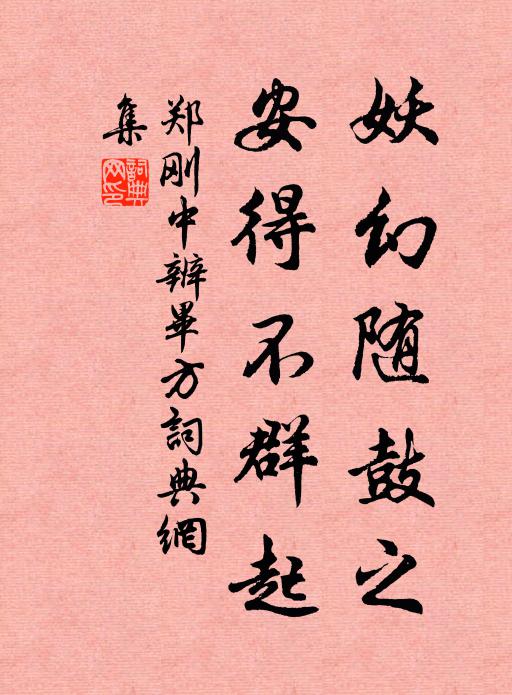 妖幻随鼓之
安得不群起
郑刚中辨畢方詞典網
集
詞典網印